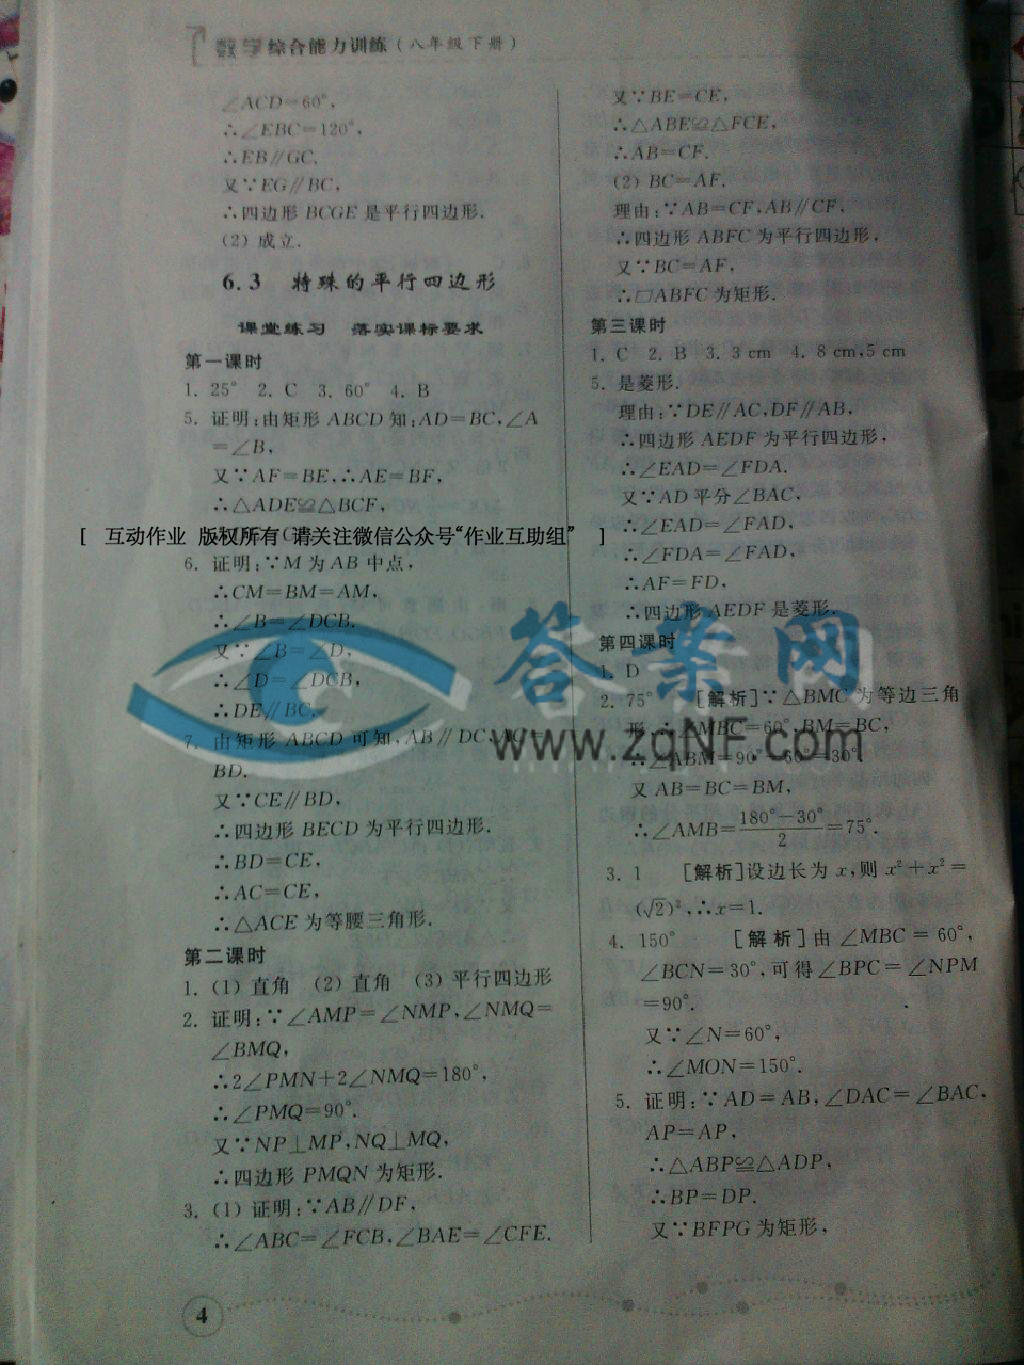 数学 综合能力训练(八年级下册)
∠ACD=60°,
∴∠EBC=120°,
∴EB∥GC.
又∵EG∥BC,
∴四边形 BCGE 是平行四边形.
(2) 成立.
6.3 特殊的平行四边形
课堂练习 落实课标要求
第一课时
1. 25° 2. C 3. 60° 4. B
5. 证明:由矩形 ABCD 知:AD=BC,∠A
=∠B,
又∵AF=BE,∴AE=BF,
∴△ADE≌△BCF,
[ 互动作业 版权所有 请关注微信公众号“作业互助组” ]
6. 证明:∵M 为 AB 中点,
∴CM=BM=AM,
∴∠B=∠DCB.
又∵∠B=∠D,
∴∠D=∠DCB,
∴DE∥BC.
7. 由矩形 ABCD 可知,AB∥DC,AC=
BD.
又∵CE∥BD,
∴四边形 BECD 为平行四边形.
∴BD=CE,
∴AC=CE,
∴△ACE 为等腰三角形.
第二课时
1. (1) 直角 (2) 直角 (3) 平行四边形
2. 证明:∵∠AMP=∠NMP,∠NMQ=
∠BMQ,
∴2∠PMN+2∠NMQ=180°,
∴∠PMQ=90°.
又∵NP⊥MP,NQ⊥MQ,
∴四边形 PMQN 为矩形.
3. (1) 证明:∵AB∥DF,
∴∠ABC=∠FCB,∠BAE=∠CFE.
又∵BE=CE,
∴△ABE≌△FCE,
∴AB=CF.
(2) BC=AF.
理由:∵AB=CF,AB∥CF.
∴四边形 ABFC 为平行四边形,
又∵BC=AF,
∴□ABFC 为矩形.
第三课时
1. C 2. B 3. 3 cm 4. 8 cm,5 cm
5. 是菱形.
理由:∵DE∥AC,DF∥AB,
∴四边形 AEDF 为平行四边形,
∴∠EAD=∠FDA.
又∵AD 平分∠BAC,
∴∠EAD=∠FAD,
∴∠FDA=∠FAD,
∴AF=FD,
∴四边形 AEDF 是菱形.
第四课时
1. D
2. 75° [解析]∵△BMC 为等边三角
形,∴∠MBC=60°,BM=BC,
∴∠ABM=90°-60°=30°.
又 AB=BC=BM,
∴∠AMB=(180°-30°)/2=75°.
3. 1 [解析]设边长为 x,则 x²+x²=
(√2)²,∴x=1.
4. 150° [解析]由 ∠MBC = 60°,
∠BCN=30°,可得∠BPC=∠NPM
=90°.
又∵∠N=60°,
∴∠MON=150°.
5. 证明:∵AD=AB,∠DAC=∠BAC,
AP=AP,
∴△ABP≌△ADP,
∴BP=DP.
又∵BFPG 为矩形,
答案网
www.zqNF.com
4